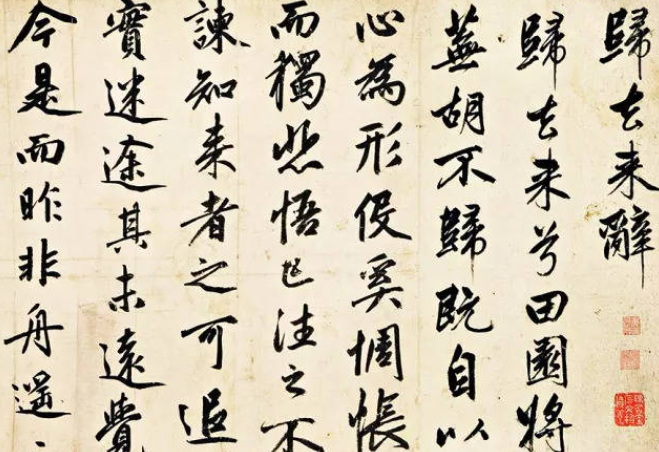 歸去来辭
歸去来兮田園將
蕪胡不歸既自以
心為形役奚惆悵
而獨悲悟已往之不
諫知来者之可追
實迷途其未遠覺
今是而昨非舟遥